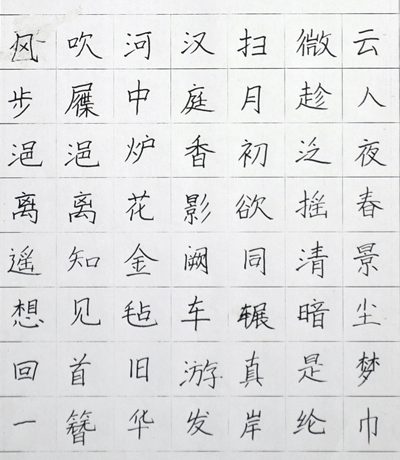 风吹河汉扫微云
步屧中庭月趁人
浥浥炉香初泛夜
离离花影欲摇春
遥知金阙同清景
想见毡车辗暗尘
回首旧游真是梦
一簪华发岸纶巾